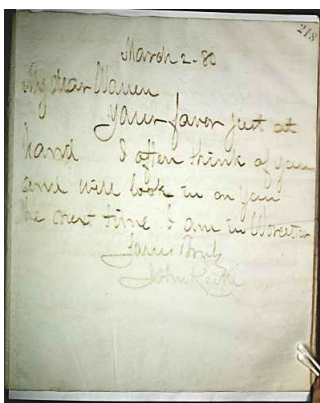 218
March 2 - 80
My dear Warren
Your favor just at
hand I often think of you
and will look in on you
the next time I am in Worcester
Yours Truly
John